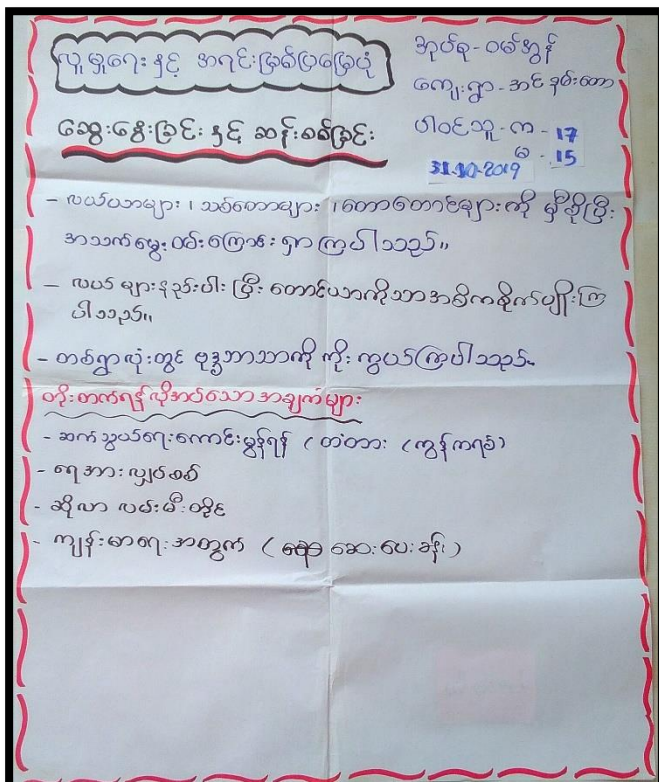 လူမှုရေး နှင့် အရင်းအမြစ်ပြမြေပုံ
အုပ်စု - ဝမ်အွန်
ကျေးရွာ - အင်နမ်းတော
ဆွေးနွေးခြင်း နှင့် ဆန်းစစ်ခြင်း
ပါဝင်သူ - က - 17
မ - 15
31-10-2019
- လယ်ယာများ ၊ သစ်တောများ ၊ တောတောင်များကို မှီခိုပြီး
အသက်မွေးဝမ်းကြောင်း ရှာကြပါသည်။
- လယ်များနည်းပါးပြီး တောင်ယာကိုသာအဓိကစိုက်ပျိုးကြ
ပါသည်။
- တစ်ရွာလုံးတွင် ဗုဒ္ဓဘာသာကို ကိုးကွယ်ကြပါသည်။
တိုးတက်ရန်လိုအပ်သောအချက်များ
- ဆက်သွယ်ရေးကောင်းမွန်ရန် (တံတား (ကွန်ကရစ်)
- ရေအားလျှပ်စစ်
- ဆိုလာ လမ်းမီးတိုင်
- ကျန်းမာရေးအတွက် ( ဆေးပေးခန်း )